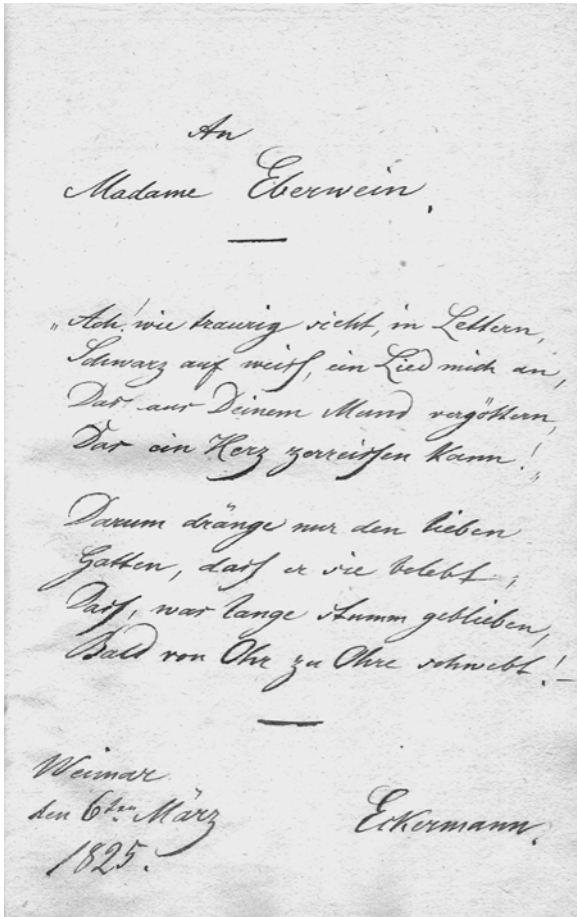 An
Madame Eberwein.
„Ach! wie traurig sieht, in Lettern,
Schwarz auf weiss, ein Lied mich an,
Das aus Deinem Mund vergöttern,
Das ein Herz zerreissen kann!"
Darum dränge nur den lieben
Gatten, dass er sie belebt;
Dass, was lange stumm geblieben,
Bald von Ohr zu Ohre schwebt! –
Weimar
den 6ten März
1825.
Eckermann.